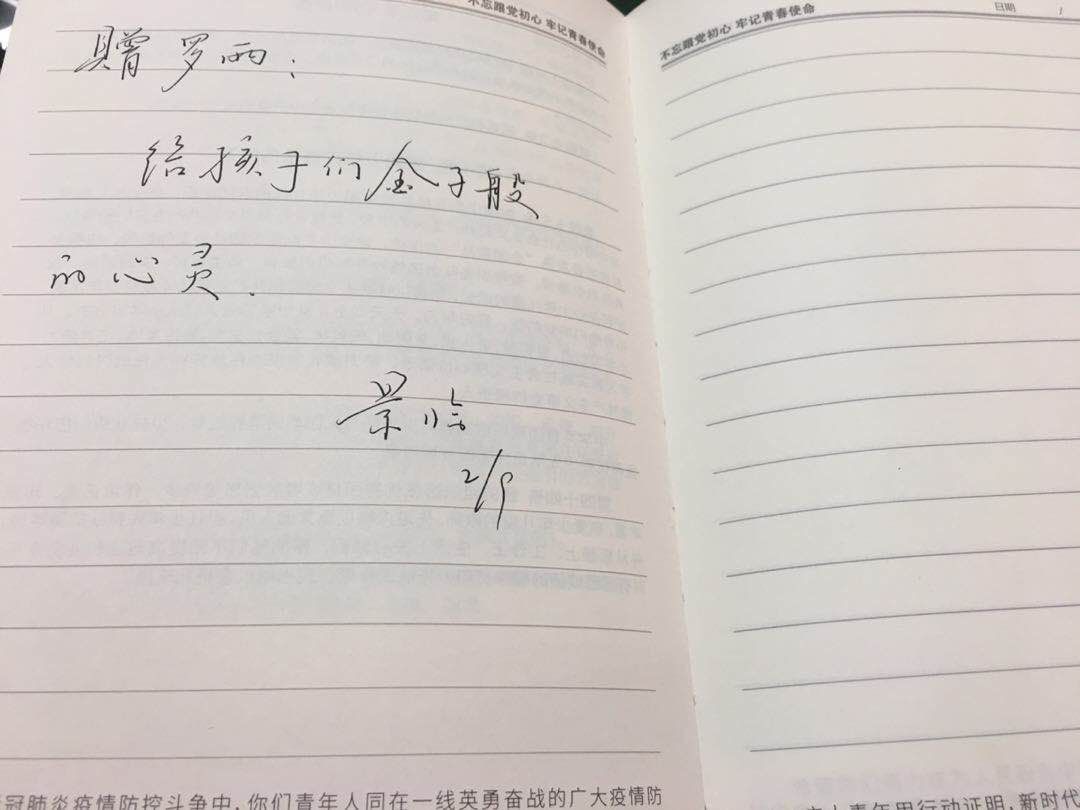 不忘跟党初心 牢记青春使命
赠罗雨：
给孩子们金子般
的心灵.
景临
2/9
冠肺炎疫情防控斗争中,你们青年人同在一线英勇奋战的广大疫情防
不忘跟党初心 牢记青春使命
日期 /
大青年用行动证明,新时代